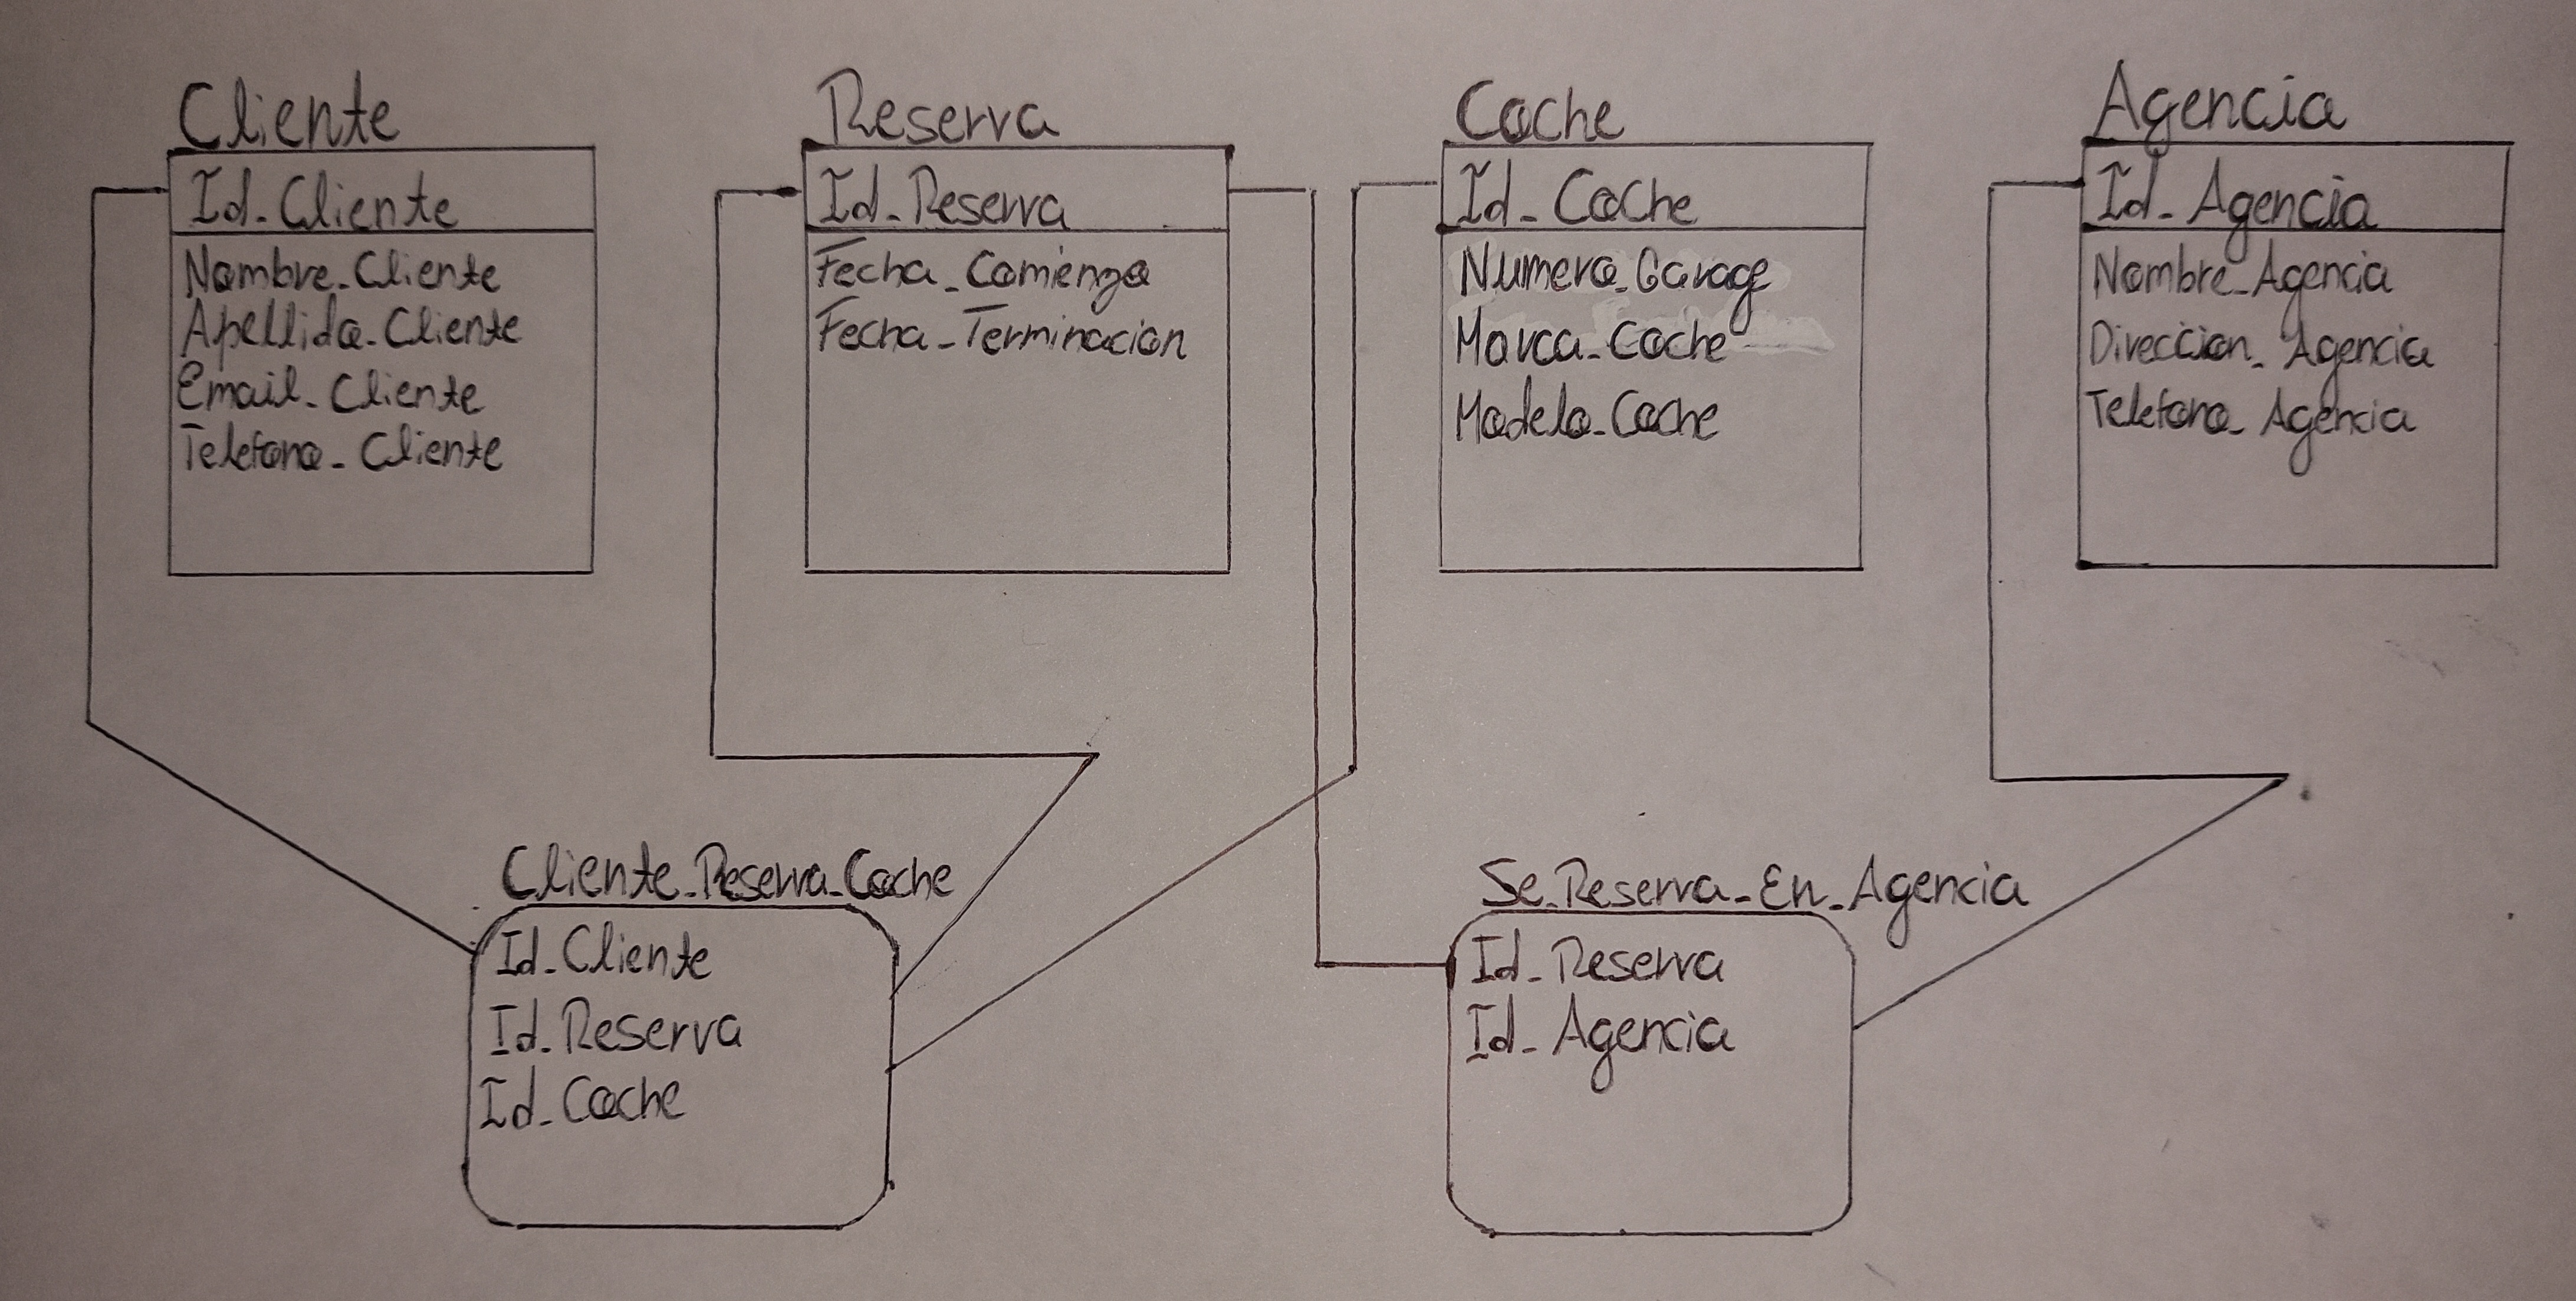 Cliente
Id_Cliente
Nombre_Cliente
Apellido_Cliente
Email_Cliente
Telefono_Cliente
Reserva
Id_Reserva
Fecha_Comienzo
Fecha_Terminacion
Coche
Id_Coche
Numero_Garage
Marca_Coche
Modelo_Coche
Agencia
Id_Agencia
Nombre_Agencia
Direccion_Agencia
Telefono_Agencia
Cliente_Reserva_Coche
Id_Cliente
Id_Reserva
Id_Coche
Se_Reserva_En_Agencia
Id_Reserva
Id_Agencia